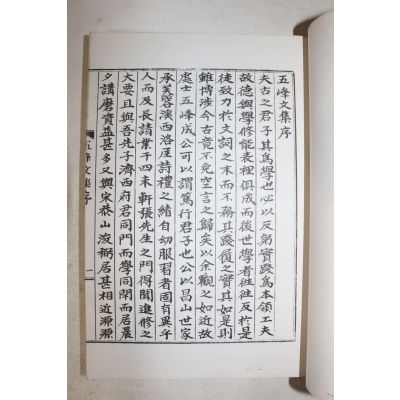 五峰文集序
夫古之君子其爲學也必以反躬實踐爲本領工夫
故德與學修能表裡俱成而後世學者徃徃反於是
徒致力於文詞之末而不務其踐履之實其如是則
雖博涉今古竟不免空言之歸矣以余觀之如近故
處士五峰成公可以謂篤行君子也公以昌山世家
承芙蓉溪西洛崖詩禮之緖自幼服習者固有異乎
人而及長請業于四未軒張先生之門得聞進修之
大要且與吾先子濟西府君同門而學同閈而居晨
夕講磨資益甚多又與宋恭山浚弼居甚相近源源
五峰文集序
一